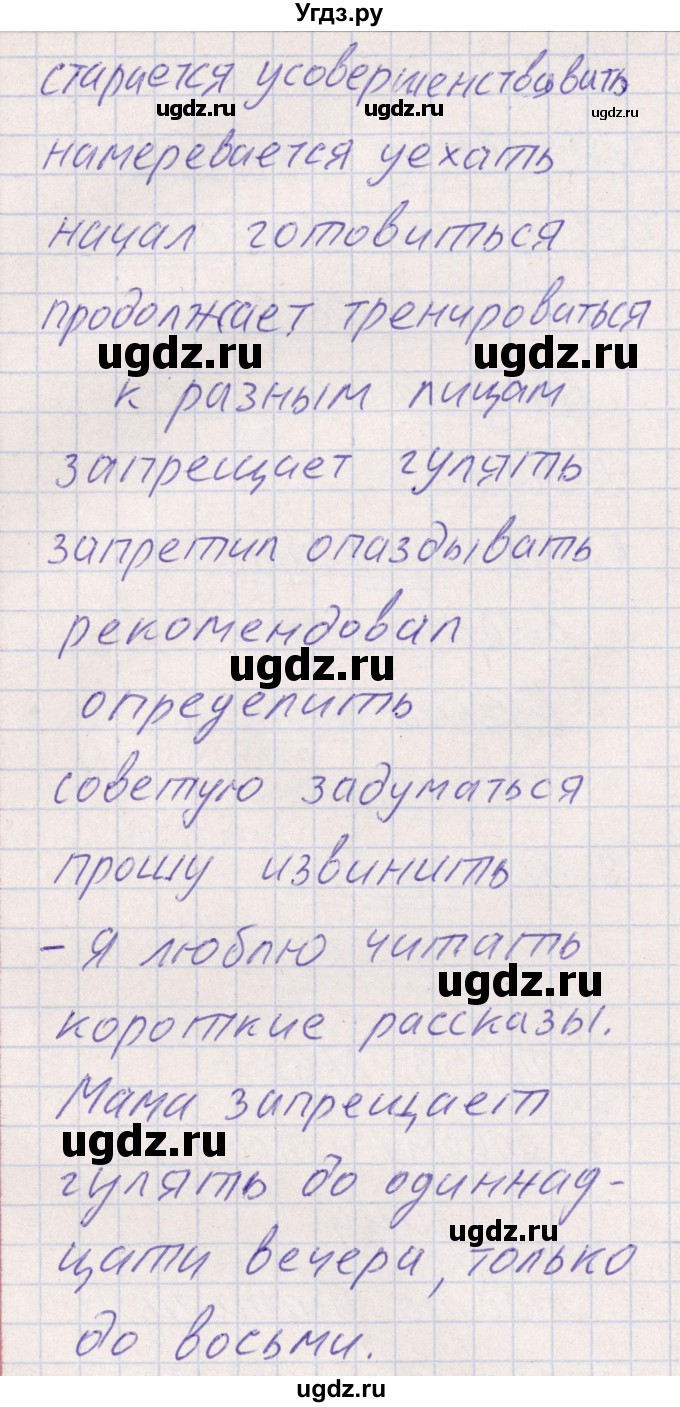 Угдз.ру
старается усовершенствовать
ugdz.ru
ugdz.ru
намеревается уехать
начал готовиться
продолжает тренироваться
ugdz.ru
ugdz.ru
к разным лицам
запрещает гулять
запретил опаздывать
рекомендовал
ugdz.ru
определить
советую задуматься
прошу извинить
- Я люблю читать
ugdz.ru
короткие рассказы.
Мама запрещает
ugdz.ru
гулять до одиннад-
ugdz.ru
цати вечера, только
до восьми.
ugdz.ru